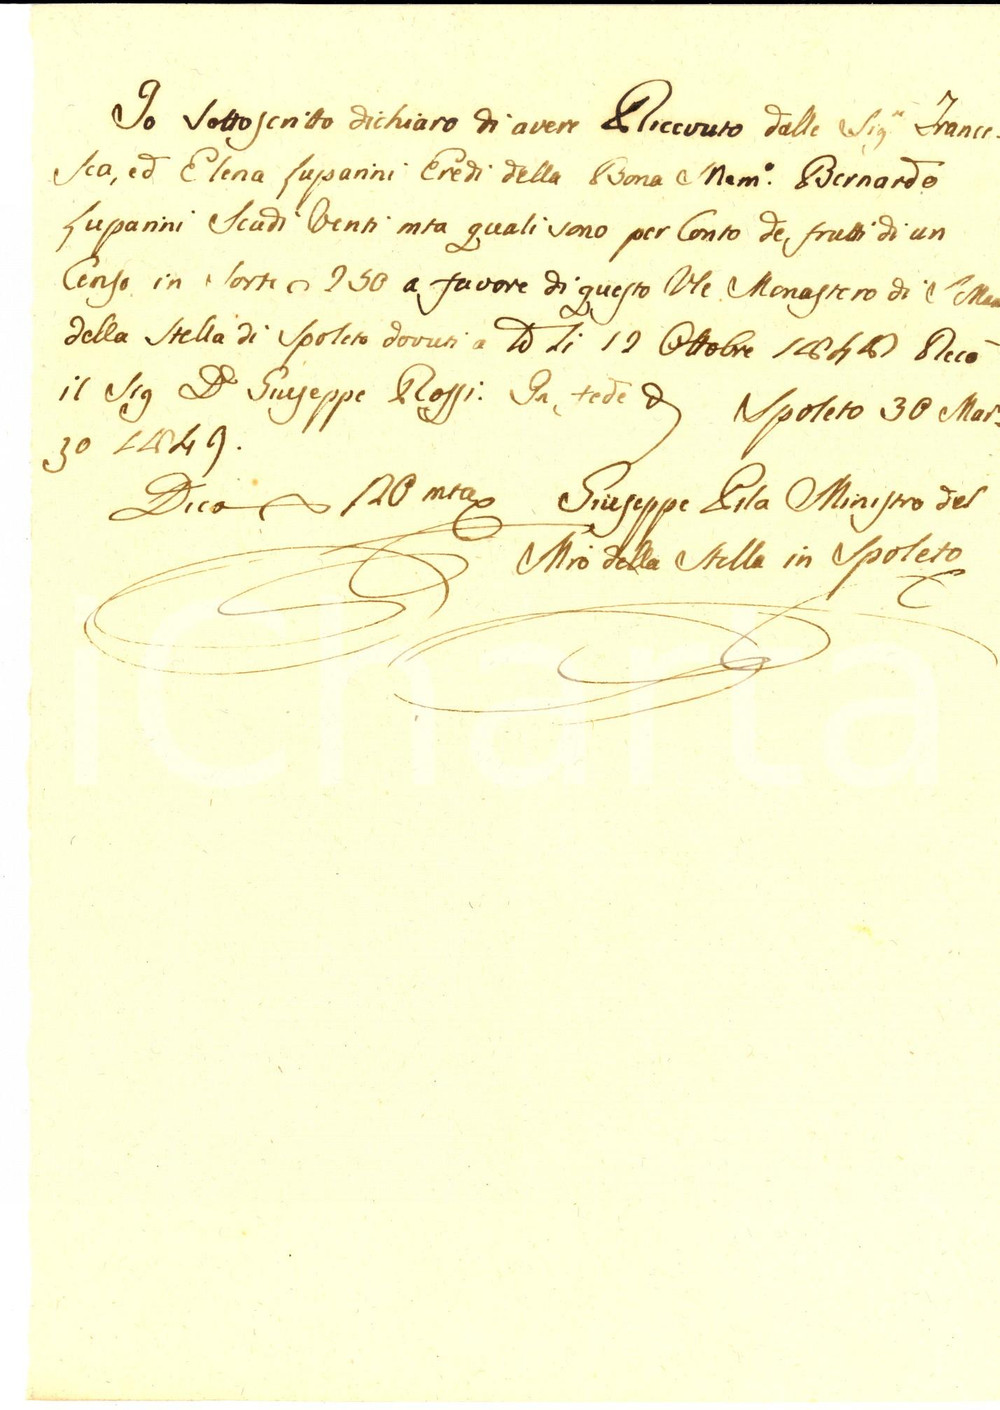 Io sottoscritto dichiaro di avere Riccevuto dalle Sigre France-
sca, ed Elena Luparini Eredi della Bona Mem:a Bernardo
Luparini Scudi Venti mta quali sono per Conto de frutti di un
Censo in Sorte 250 a favore di questo Vle Monastero di S. Maa
della Stella di Spoleto dovuti a tto li 12 Ottobre 1848 Recò
il Sig Dn Giuseppe Rossi. In fede Spoleto 30 Mar-
zo 1849.
Dico 20 mta Giuseppe Pila Ministro del
Mrō della Stella in Spoleto
iCharta